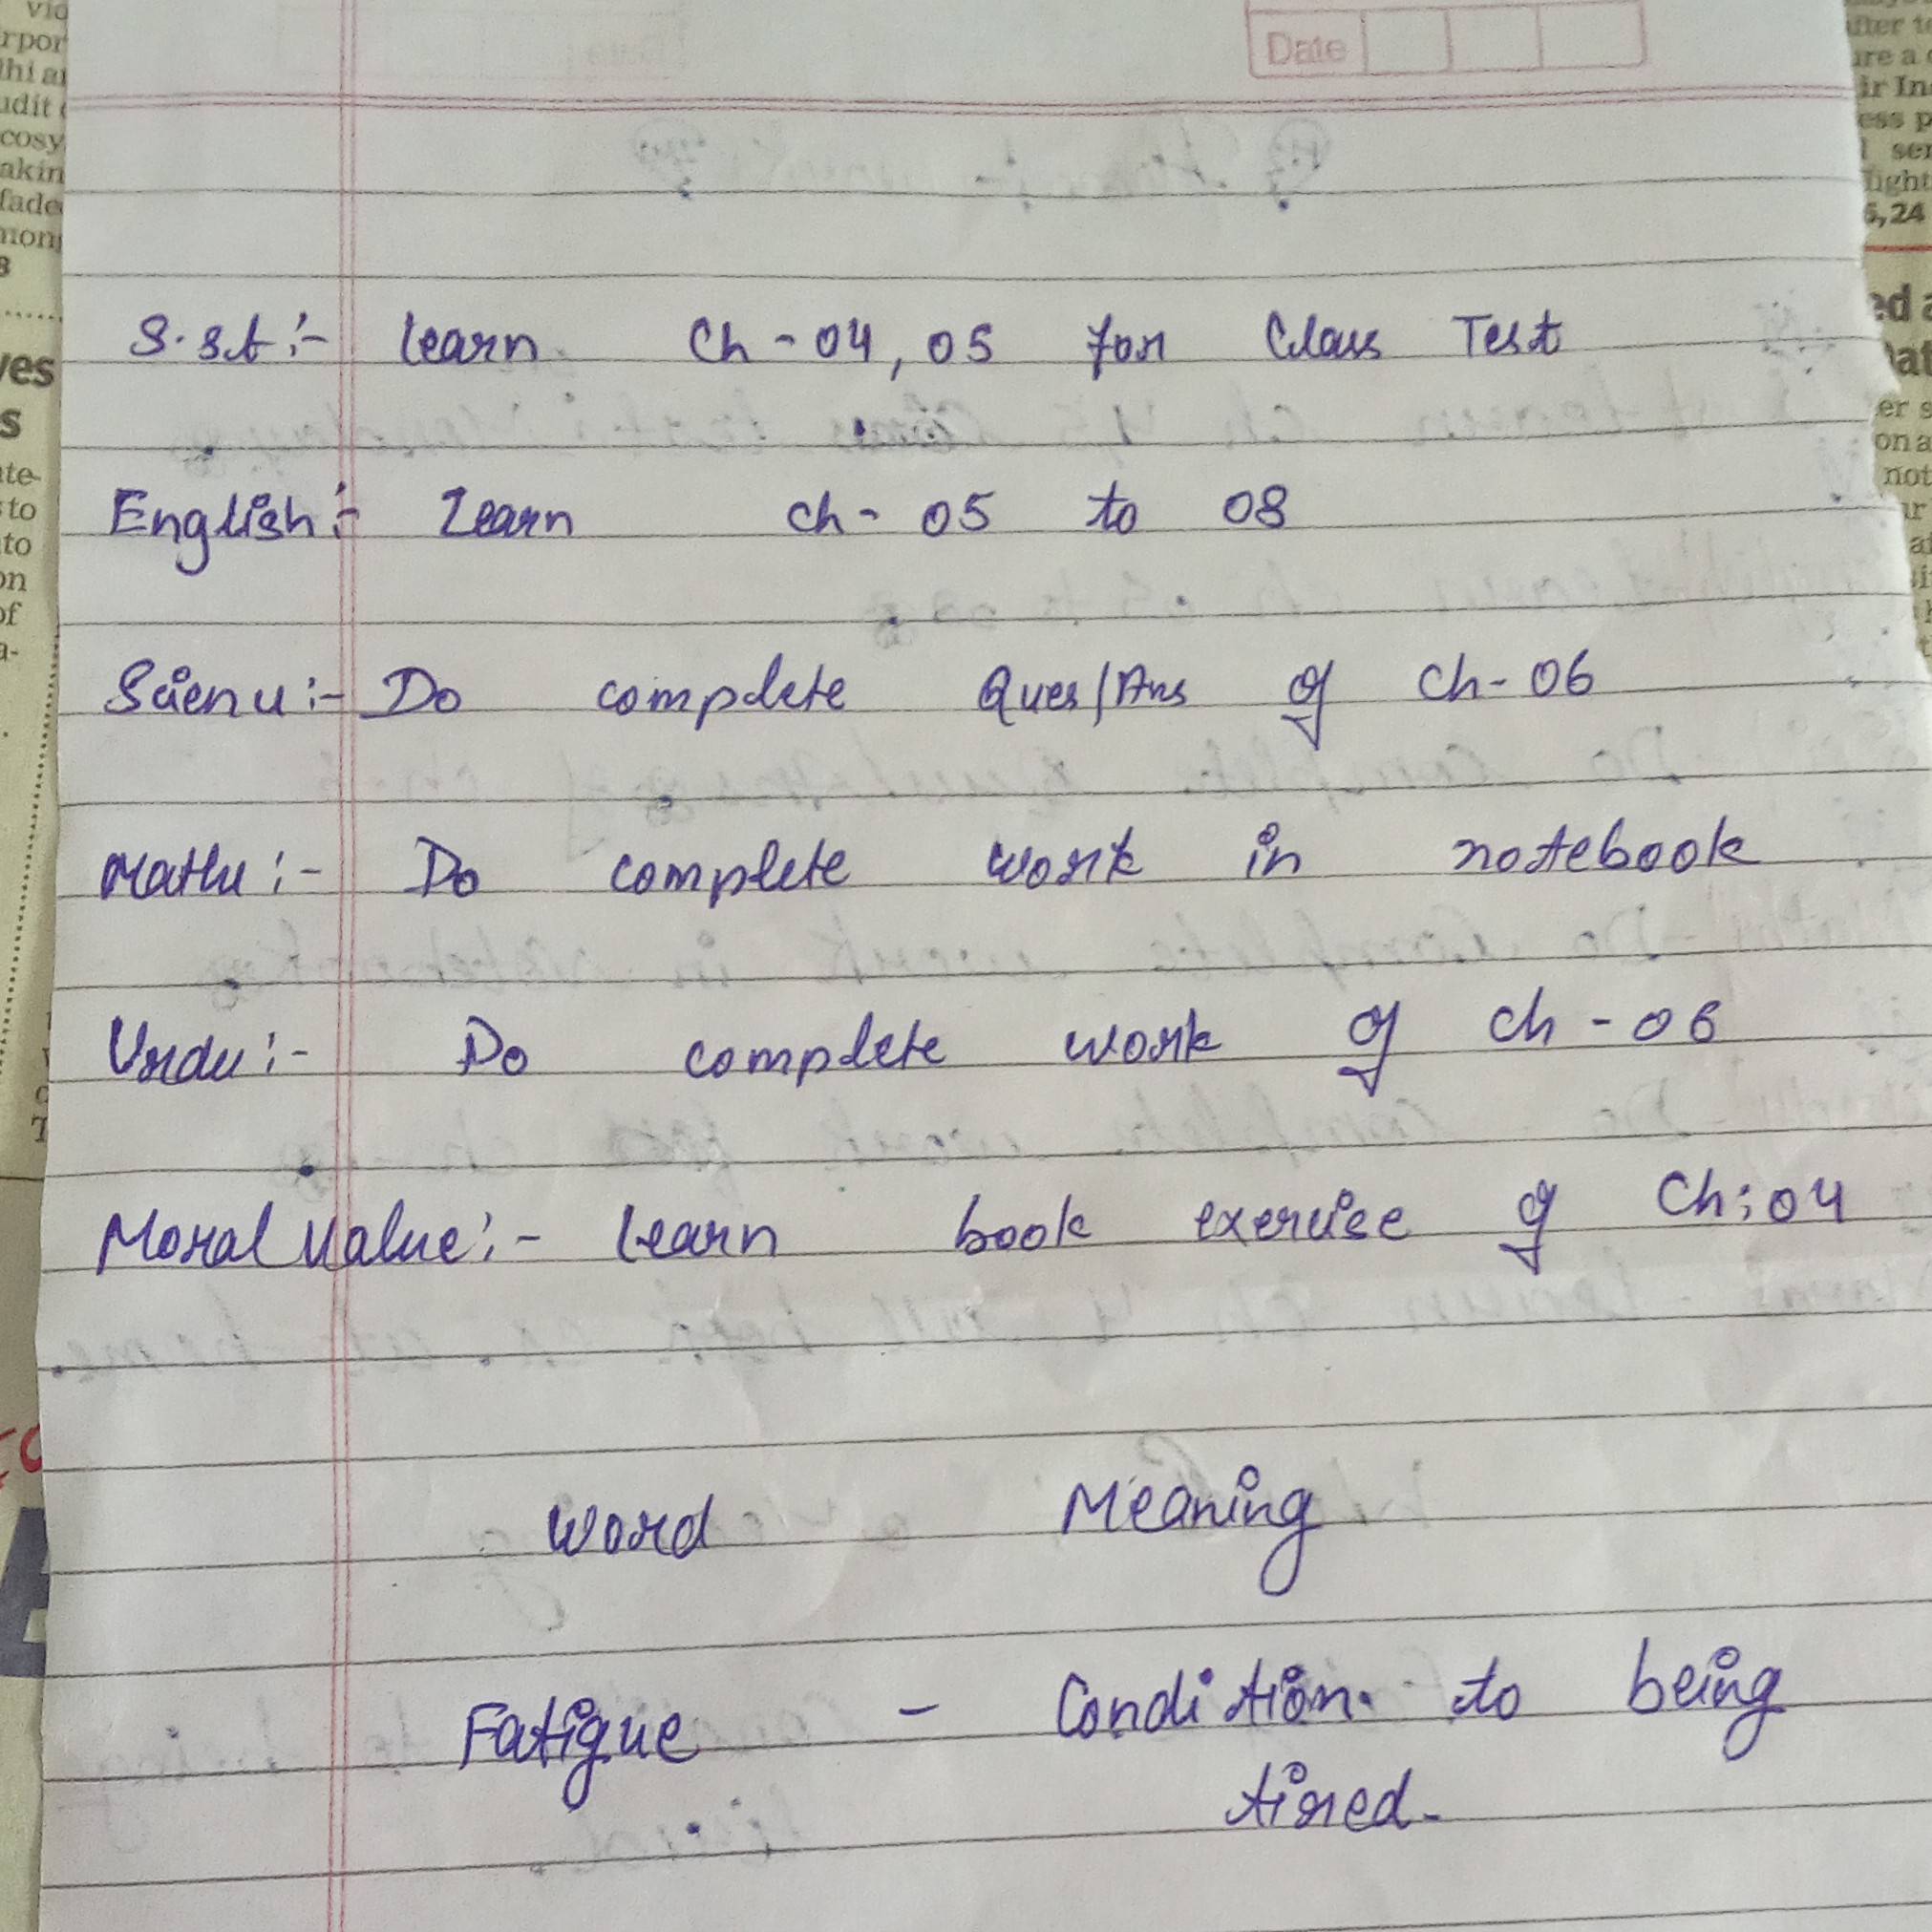 Date
S.st:- Learn Ch-04, 05 for Class Test
English:- Learn ch-05 to 08
Science:- Do complete Ques/Ans of Ch-06
Maths:- Do complete work in notebook
Urdu:- Do complete work of ch-06
Moral Value:- Learn book exercise of Ch:04
Word Meaning
Fatigue - Condition to being
tired.